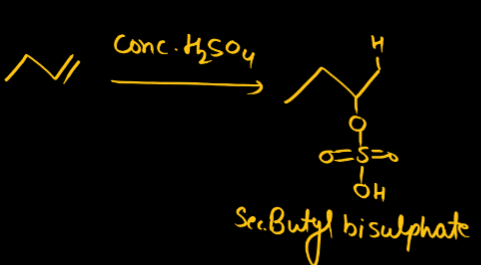 Conc. H₂SO₄
H
O
O=S=O
OH
Sec. Butyl bisulphate